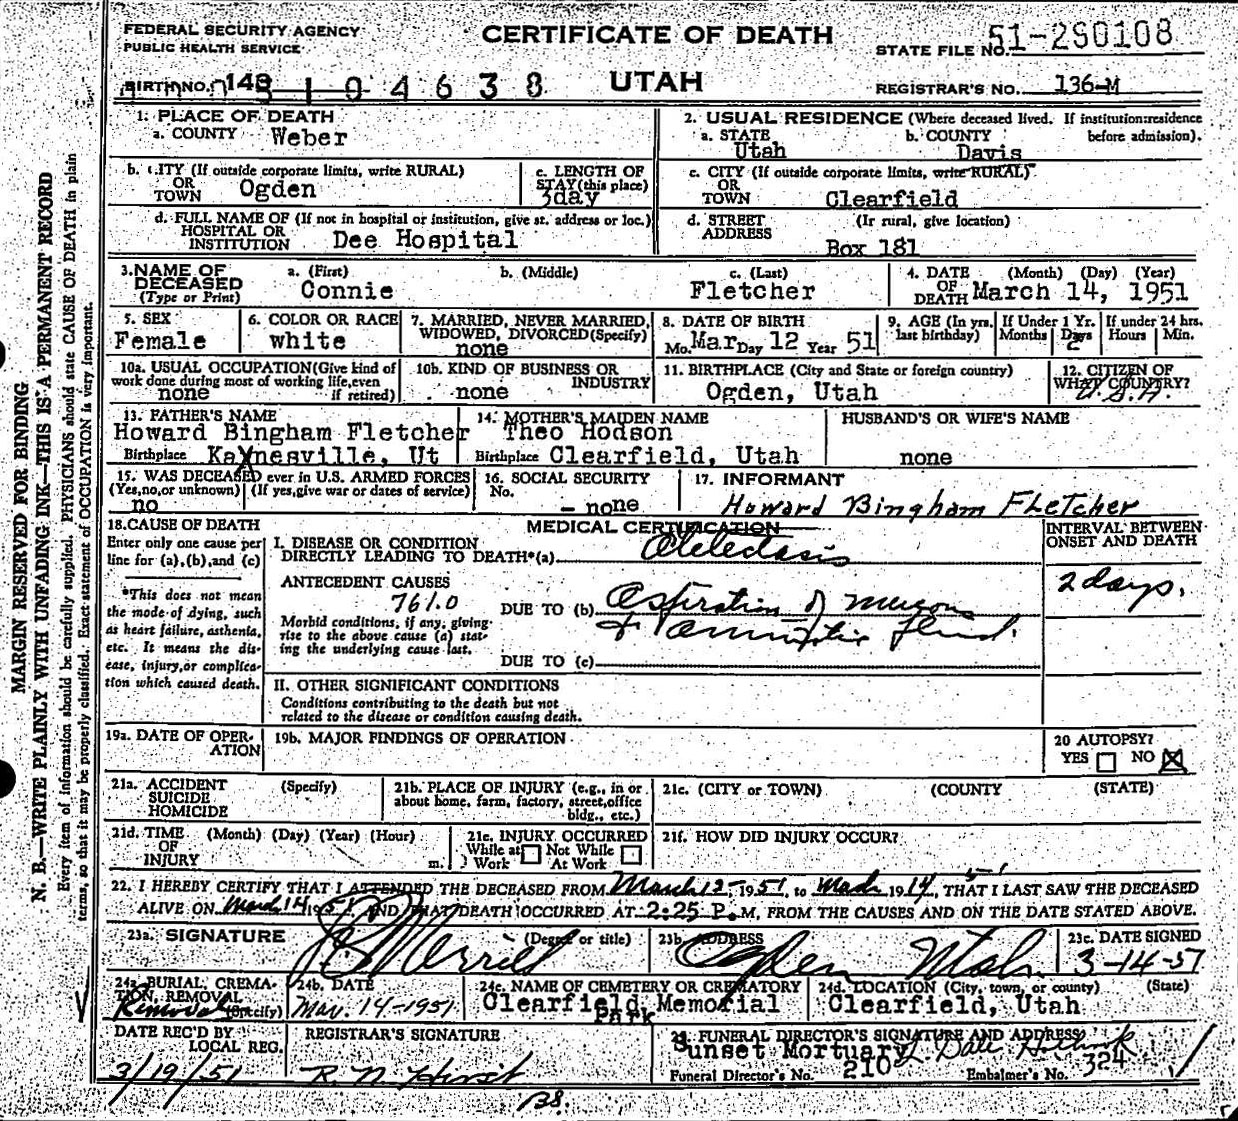 FEDERAL SECURITY AGENCY
PUBLIC HEALTH SERVICE
CERTIFICATE OF DEATH
STATE FILE NO. 51-290108
BIRTH NO. 148 3104638
UTAH
REGISTRAR'S NO. 136-M
1. PLACE OF DEATH
a. COUNTY Weber
2. USUAL RESIDENCE (Where deceased lived. If institution:residence before admission).
a. STATE Utah
b. COUNTY Davis
b. CITY (If outside corporate limits, write RURAL)
OR
TOWN Ogden
c. LENGTH OF
STAY(this place)
3day
c. CITY (If outside corporate limits, write RURAL)
OR
TOWN Clearfield
d. FULL NAME OF (If not in hospital or institution, give st. address or loc.)
HOSPITAL OR
INSTITUTION Dee Hospital
d. STREET (If rural, give location)
ADDRESS Box 181
3. NAME OF
DECEASED
(Type or Print)
a. (First) Connie
b. (Middle)
c. (Last) Fletcher
4. DATE (Month) (Day) (Year)
OF
DEATH March 14, 1951
5. SEX
Female
6. COLOR OR RACE
white
7. MARRIED, NEVER MARRIED,
WIDOWED, DIVORCED(Specify)
none
8. DATE OF BIRTH
Mo. Mar Day 12 Year 51
9. AGE (In yrs. last birthday)
If Under 1 Yr.
Months Days
2
If under 24 hrs.
Hours Min.
10a. USUAL OCCUPATION(Give kind of
work done during most of working life,even
if retired)
none
10b. KIND OF BUSINESS OR
INDUSTRY
none
11. BIRTHPLACE (City and State or foreign country)
Ogden, Utah
12. CITIZEN OF
WHAT COUNTRY?
U.S.A.
13. FATHER'S NAME
Howard Bingham Fletcher
Birthplace Kaynesville, Ut
14. MOTHER'S MAIDEN NAME
Theo Hodson
Birthplace Clearfield, Utah
HUSBAND'S OR WIFE'S NAME
none
15. WAS DECEASED ever in U.S. ARMED FORCES
(Yes,no,or unknown) (If yes,give war or dates of service)
no
16. SOCIAL SECURITY
No.
- none
17. INFORMANT
Howard Bingham Fletcher
18. CAUSE OF DEATH
Enter only one cause per
line for (a),(b),and (c)
*This does not mean
the mode of dying, such
as heart failure, asthenia,
etc. It means the dis-
ease, injury,or complica-
tion which caused death.
MEDICAL CERTIFICATION
I. DISEASE OR CONDITION
DIRECTLY LEADING TO DEATH*(a) Atelectasis
ANTECEDENT CAUSES
761.0
Morbid conditions, if any, giving
rise to the above cause (a) stat-
ing the underlying cause last.
DUE TO (b) Aspiration of mucous
+ amniotic fluid.
DUE TO (c)
INTERVAL BETWEEN
ONSET AND DEATH
2 days.
II. OTHER SIGNIFICANT CONDITIONS
Conditions contributing to the death but not
related to the disease or condition causing death.
19a. DATE OF OPER-
ATION
19b. MAJOR FINDINGS OF OPERATION
20 AUTOPSY?
YES NO
21a. ACCIDENT (Specify)
SUICIDE
HOMICIDE
21b. PLACE OF INJURY (e.g., in or
about home, farm, factory, street,office
bldg., etc.)
21c. (CITY or TOWN) (COUNTY) (STATE)
21d. TIME (Month) (Day) (Year) (Hour)
OF
INJURY m.
21e. INJURY OCCURRED
While at Not While
Work At Work
21f. HOW DID INJURY OCCUR?
22. I HEREBY CERTIFY THAT I ATTENDED THE DECEASED FROM March 12-1951, to March 1914, THAT I LAST SAW THE DECEASED
ALIVE ON March 14 1951 AND THAT DEATH OCCURRED AT 2:25 P.M, FROM THE CAUSES AND ON THE DATE STATED ABOVE.
23a. SIGNATURE (Degree or title)
Merrill
23b. ADDRESS
Ogden Utah
23c. DATE SIGNED
3-14-51
24a. BURIAL, CREMA-
TION, REMOVAL
(Specify)
Removal
24b. DATE
Mar. 14-1951
24c. NAME OF CEMETERY OR CREMATORY
Clearfield Memorial
Park
24d. LOCATION (City, town, or county) (State)
Clearfield, Utah
DATE REC'D BY
LOCAL REG.
3/19/51
REGISTRAR'S SIGNATURE
R. N. Hirst
25. FUNERAL DIRECTOR'S SIGNATURE AND ADDRESS
Sunset Mortuary
Funeral Director's No. 210
Embalmer's No. 324
138.
MARGIN RESERVED FOR BINDING
N. B.—WRITE PLAINLY WITH UNFADING INK—THIS IS A PERMANENT RECORD
Every item of information should be carefully supplied. PHYSICIANS should state CAUSE OF DEATH in plain
terms, so that it may be properly classified. Exact statement of OCCUPATION is very important.